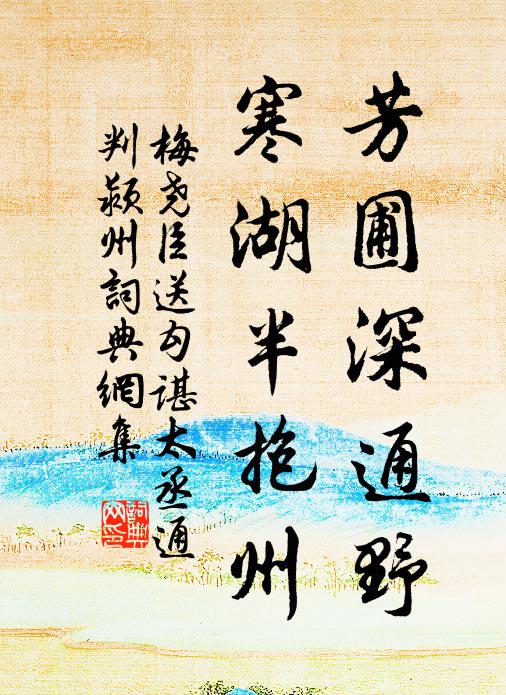 芳圃深通野
寒湖半抱州
梅堯臣送勾諶太丞通
判潁州詞典網集
詞典
网印